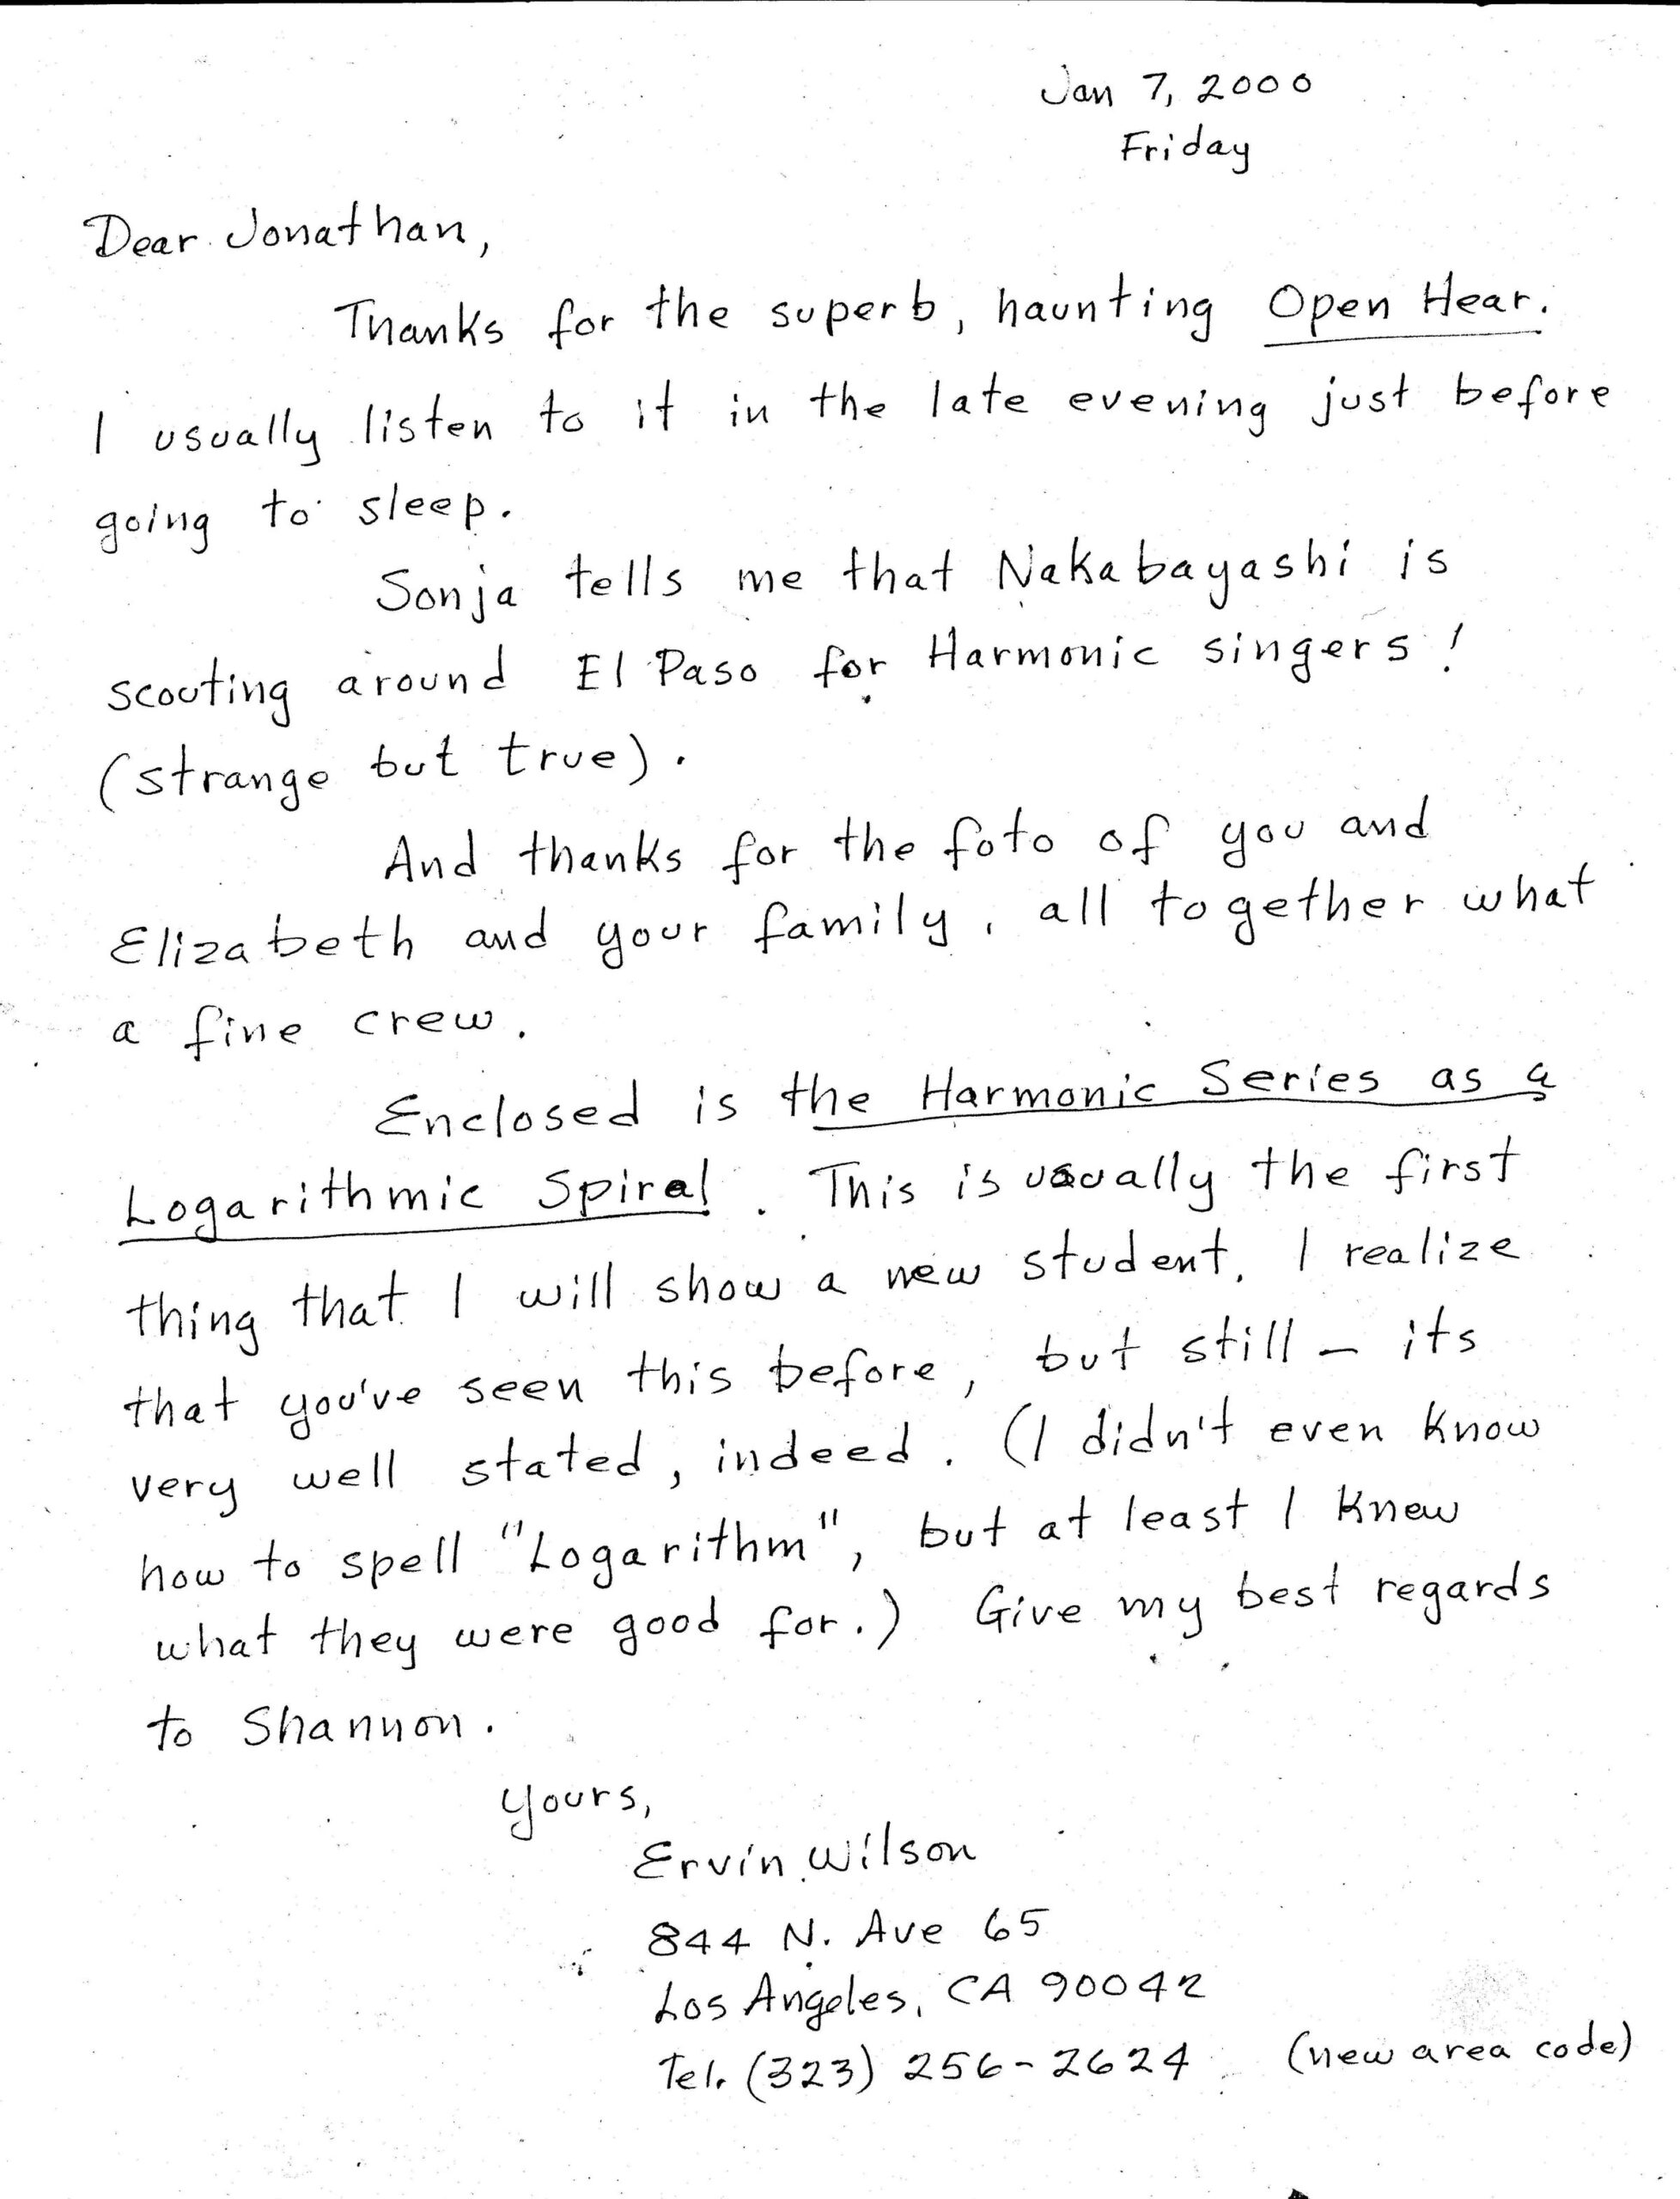 Jan 7, 2000
Friday
Dear Jonathan,
Thanks for the superb, haunting Open Hear.
I usually listen to it in the late evening just before
going to sleep.
Sonja tells me that Nakabayashi is
scouting around El Paso for Harmonic singers!
(strange but true).
And thanks for the foto of you and
Elizabeth and your family, all together what
a fine crew.
Enclosed is the Harmonic Series as a
Logarithmic Spiral. This is usually the first
thing that I will show a new student. I realize
that you've seen this before, but still – its
very well stated, indeed. (I didn't even know
how to spell "Logarithm", but at least I knew
what they were good for.) Give my best regards
to Shannon.
Yours,
Ervin Wilson
844 N. Ave 65
Los Angeles, CA 90042
Tel. (323) 256-2624 (new area code)